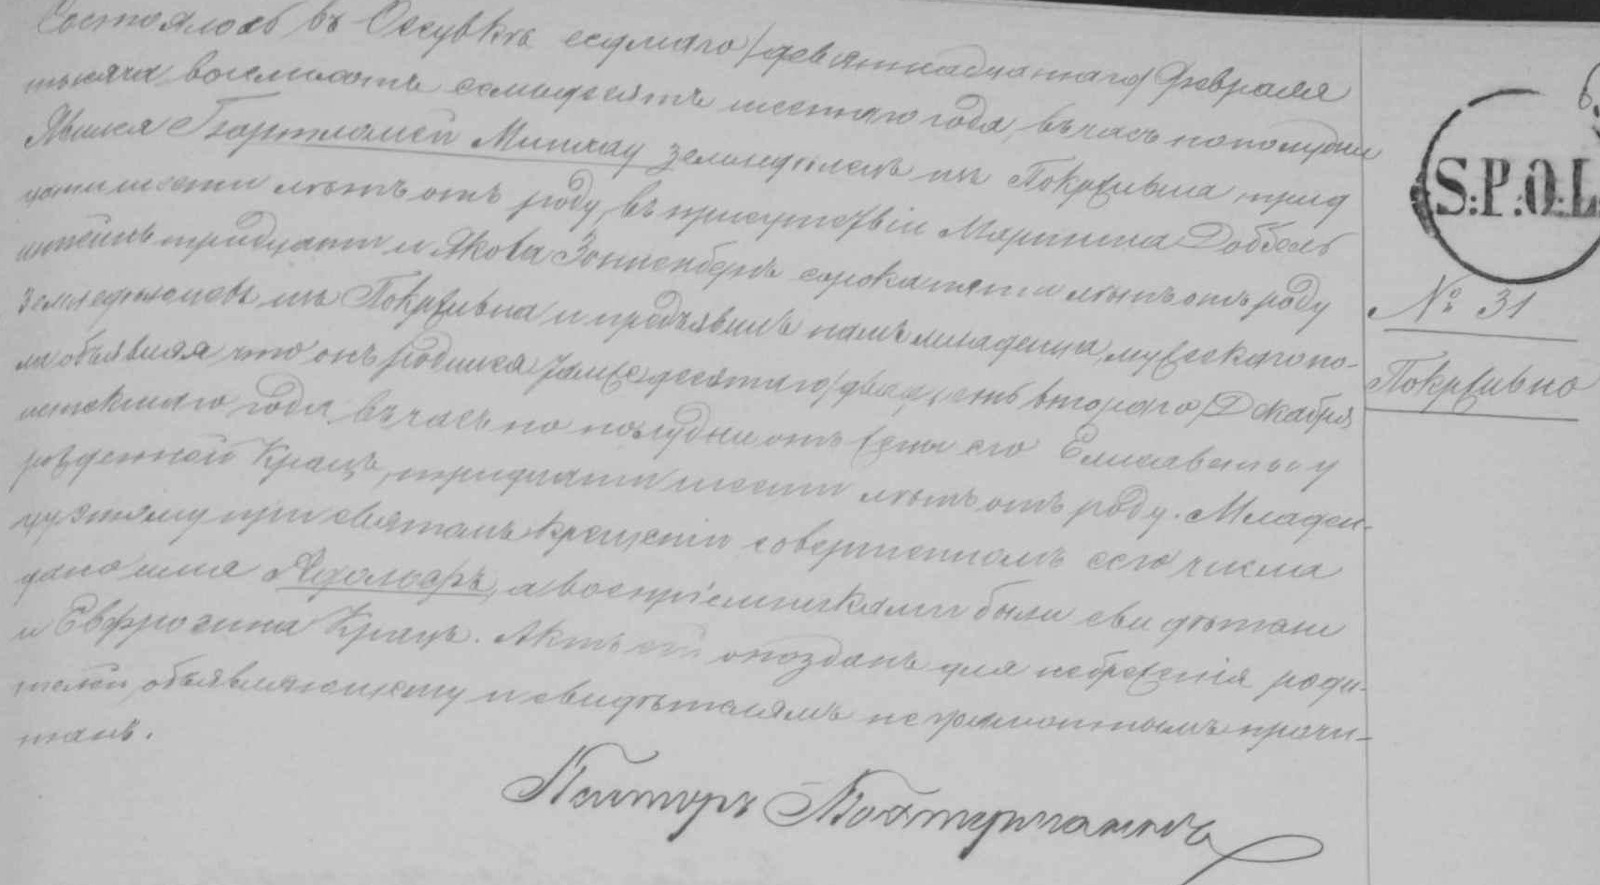 Состоялось въ Осувкѣ седмаго/девятнадцатаго/ Февраля
тысяча восемьсотъ семьдесятъ шестаго года, въ часъ пополудни
Явился Бартломей Минхау земледѣлецъ изъ Покрживна, трид
цати шести лѣтъ отъ роду, въ присутствіи Мартина Доббель
штейнъ тридцати и Якова Зонненбергъ сорока пяти лѣтъ отъ роду
земледѣльцевъ изъ Покрживна и предъявилъ намъ младенца мужескаго по-
ла объявляя что онъ родился десятаго/двадцать втораго/ Декабря
истекшаго года въ часъ по полудни отъ жены его Елисаветы у
рожденной Крацъ, тридцати шести лѣтъ отъ роду. Младен-
цу этому при святомъ крещеніи совершенномъ сего числа
дано имя Адольфъ, а воспріемниками были свидѣтели
и Евфрозина Крацъ. Актъ сей опозданъ для небреженія роди-
телей, объявляющему и свидѣтелямъ неграмотнымъ прочи-
танъ.
Пасторъ
S.P.O.L
№ 31
Покрживно